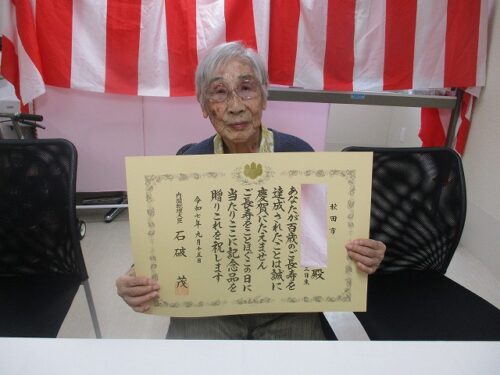 秋田市
殿
あなたが百歳のご長寿を
達成されたことは誠に
慶賀にたえません
ご長寿をことほぐこの日に
当たりここに記念品を
贈りこれを祝します
令和七年九月十五日
内閣総理大臣 石破 茂